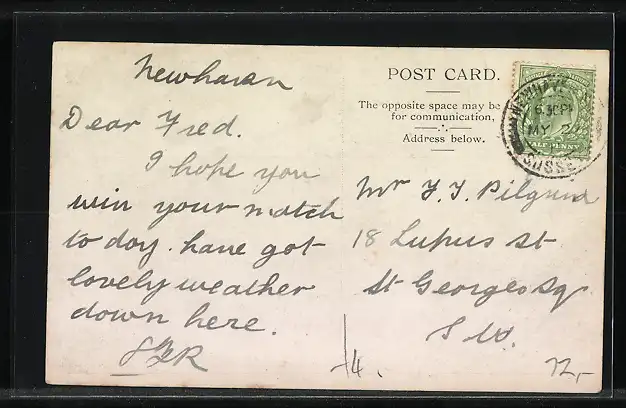 Newhaven
Dear Fred.
I hope you
win your match
to day. have got
lovely weather
down here.
POST CARD.
The opposite space may be
for communication,
Address below.
NEWHAVEN
6.30PM
MY 2
SUSSEX
HALFPENNY
Mr F. J. Pilgrim
18 Lupus St
St Georges Sq
S.W.
14.
72,-